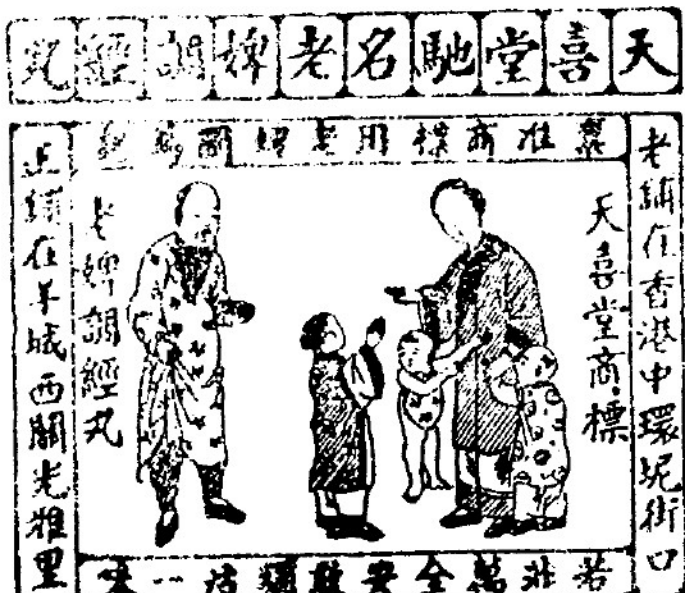 天喜堂馳名老婢調經丸
准商標用老婢圖
老舖在香港中環坭街口
天喜堂商標
老婢調經丸
正舖在羊城西關光雅里
若非萬全安敢獨沽一味